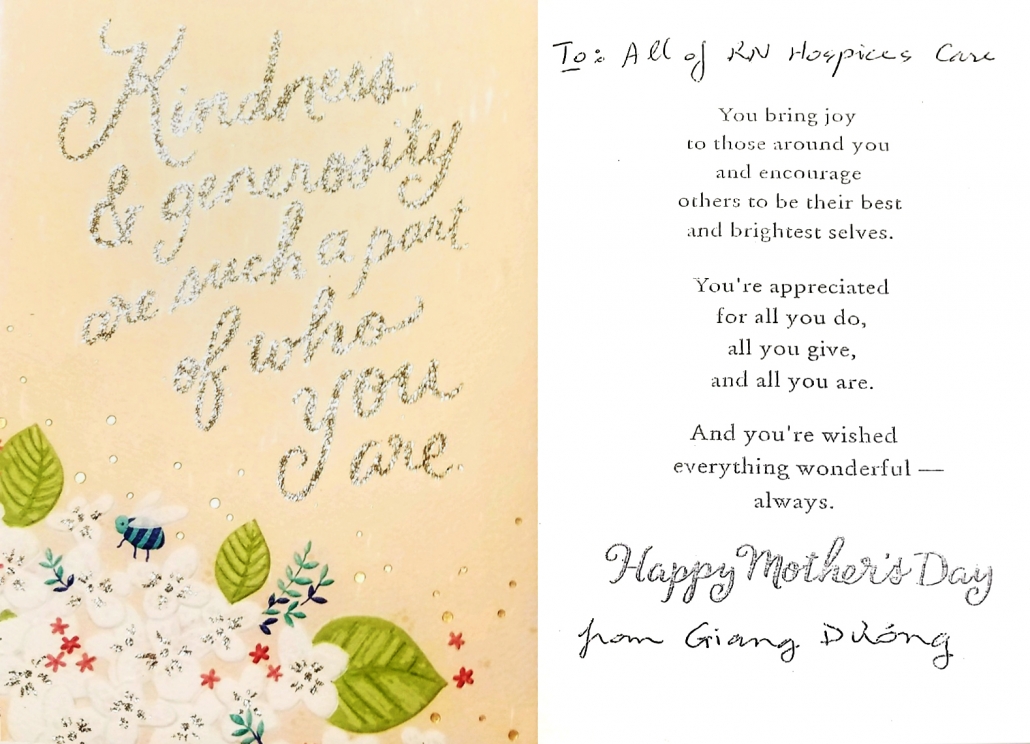 Kindness
& generosity
are such a part
of who
you
are.
To: All of RN Hospices Care
You bring joy
to those around you
and encourage
others to be their best
and brightest selves.
You're appreciated
for all you do,
all you give,
and all you are.
And you're wished
everything wonderful —
always.
Happy Mother's Day
from Giang Dương